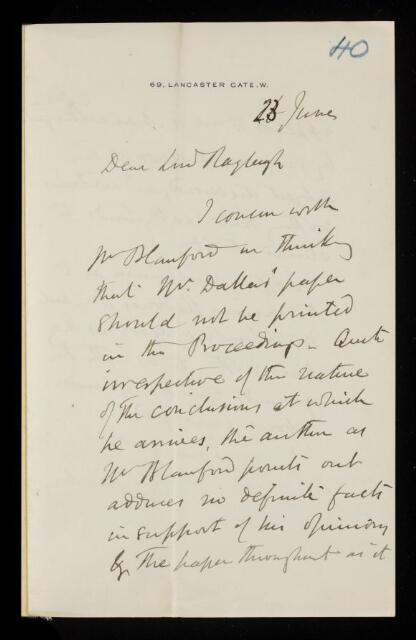 40
69, LANCASTER GATE. W.
23 June
Dear Lord Rayleigh
I concur with
Mr Blanford in thinking
that Mr. Dallas' paper
should not be printed
in the Proceedings. Quite
irrespective of the nature
of the conclusions at which
he arrives, the author as
Mr Blanford points out
adduces no definite facts
in support of his opinions
The paper throughout as it